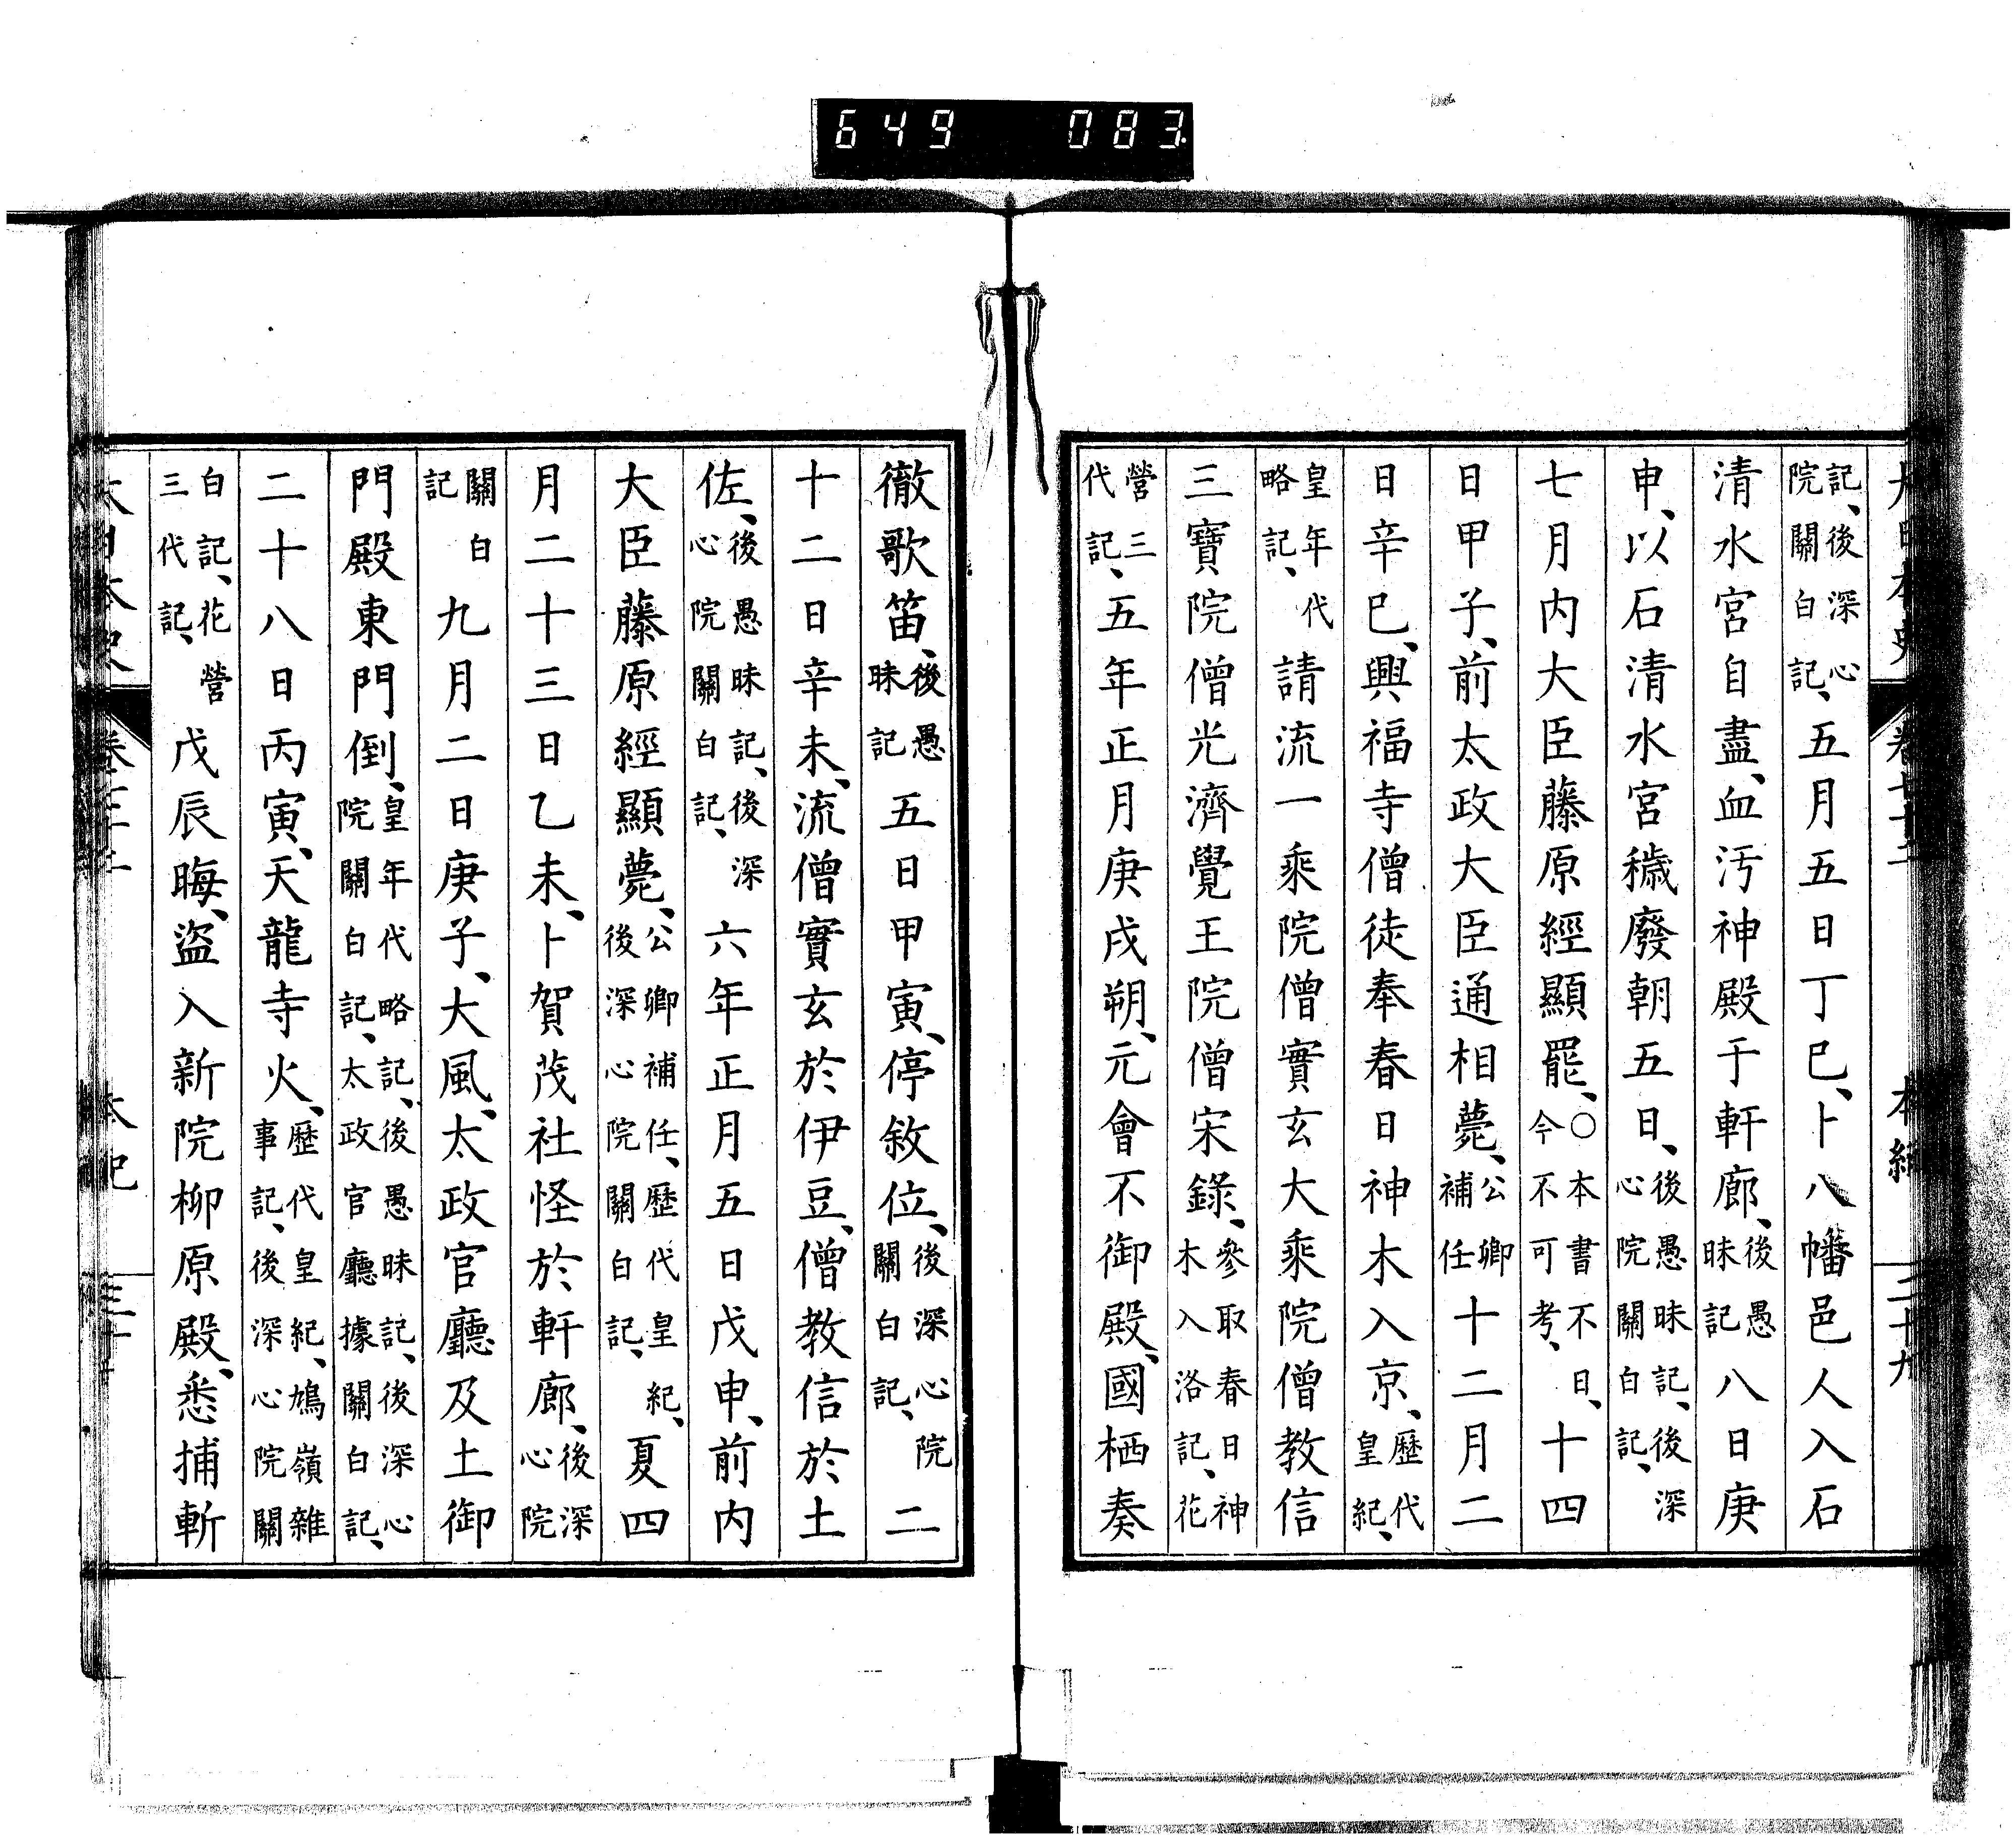 649 083
大日本史 卷七十二 本紀 三十九
記、後深心院關白記、五月五日丁巳、卜八幡邑人入石
清水宮自盡、血汚神殿于軒廊、後愚昧記八日庚
申、以石清水宮穢廢朝五日、後愚昧記、後深心院關白記、
七月内大臣藤原經顯罷、〇本書不日、今不可考、十四
日甲子、前太政大臣通相薨、公卿補任十二月二
日辛巳、興福寺僧徒奉春日神木入京、歷代皇紀、
皇年代略記、請流一乘院僧實玄大乘院僧教信
三寶院僧光濟覺王院僧宋錄、參取春日神木入洛記、花
營三代記、五年正月庚戌朔、元會不御殿、國栖奏
徹歌笛、後愚昧記五日甲寅、停敘位、後深心院關白記、二
十二日辛未、流僧實玄於伊豆、僧教信於土
佐、後愚昧記、後深心院關白記、六年正月五日戊申、前内
大臣藤原經顯薨、公卿補任、歷代皇紀、後深心院關白記、夏四
月二十三日乙未、卜賀茂社怪於軒廊、後深心院
關白記九月二日庚子、大風、太政官廳及土御
門殿東門倒、皇年代略記、後愚昧記、後深心院關白記、太政官廳據關白記、
二十八日丙寅、天龍寺火、歷代皇紀、鳩嶺雜事記、後深心院關
白記、花營三代記、戊辰晦、盜入新院柳原殿、悉捕斬
大日本史 本紀